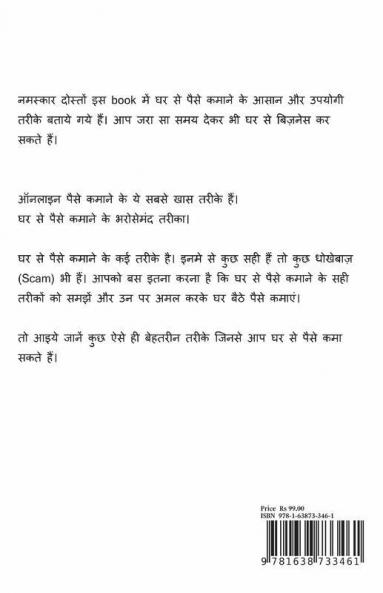 नमस्कार दोस्तों इस book में घर से पैसे कमाने के आसान और उपयोगी
तरीके बताये गये हैं। आप जरा सा समय देकर भी घर से बिज़नेस कर
सकते हैं।
ऑनलाइन पैसे कमाने के ये सबसे खास तरीके हैं।
घर से पैसे कमाने के भरोसेमंद तरीका।
घर से पैसे कमाने के कई तरीके है। इनमे से कुछ सही हैं तो कुछ धोखेबाज़
(Scam) भी हैं। आपको बस इतना करना है कि घर से पैसे कमाने के सही
तरीकों को समझें और उन पर अमल करके घर बैठे पैसे कमाएं।
तो आइये जानें कुछ ऐसे ही बेहतरीन तरीके जिनसे आप घर से पैसे कमा
सकते हैं।
Price Rs 99.00
ISBN 978-1-63873-346-1
9 781638 733461